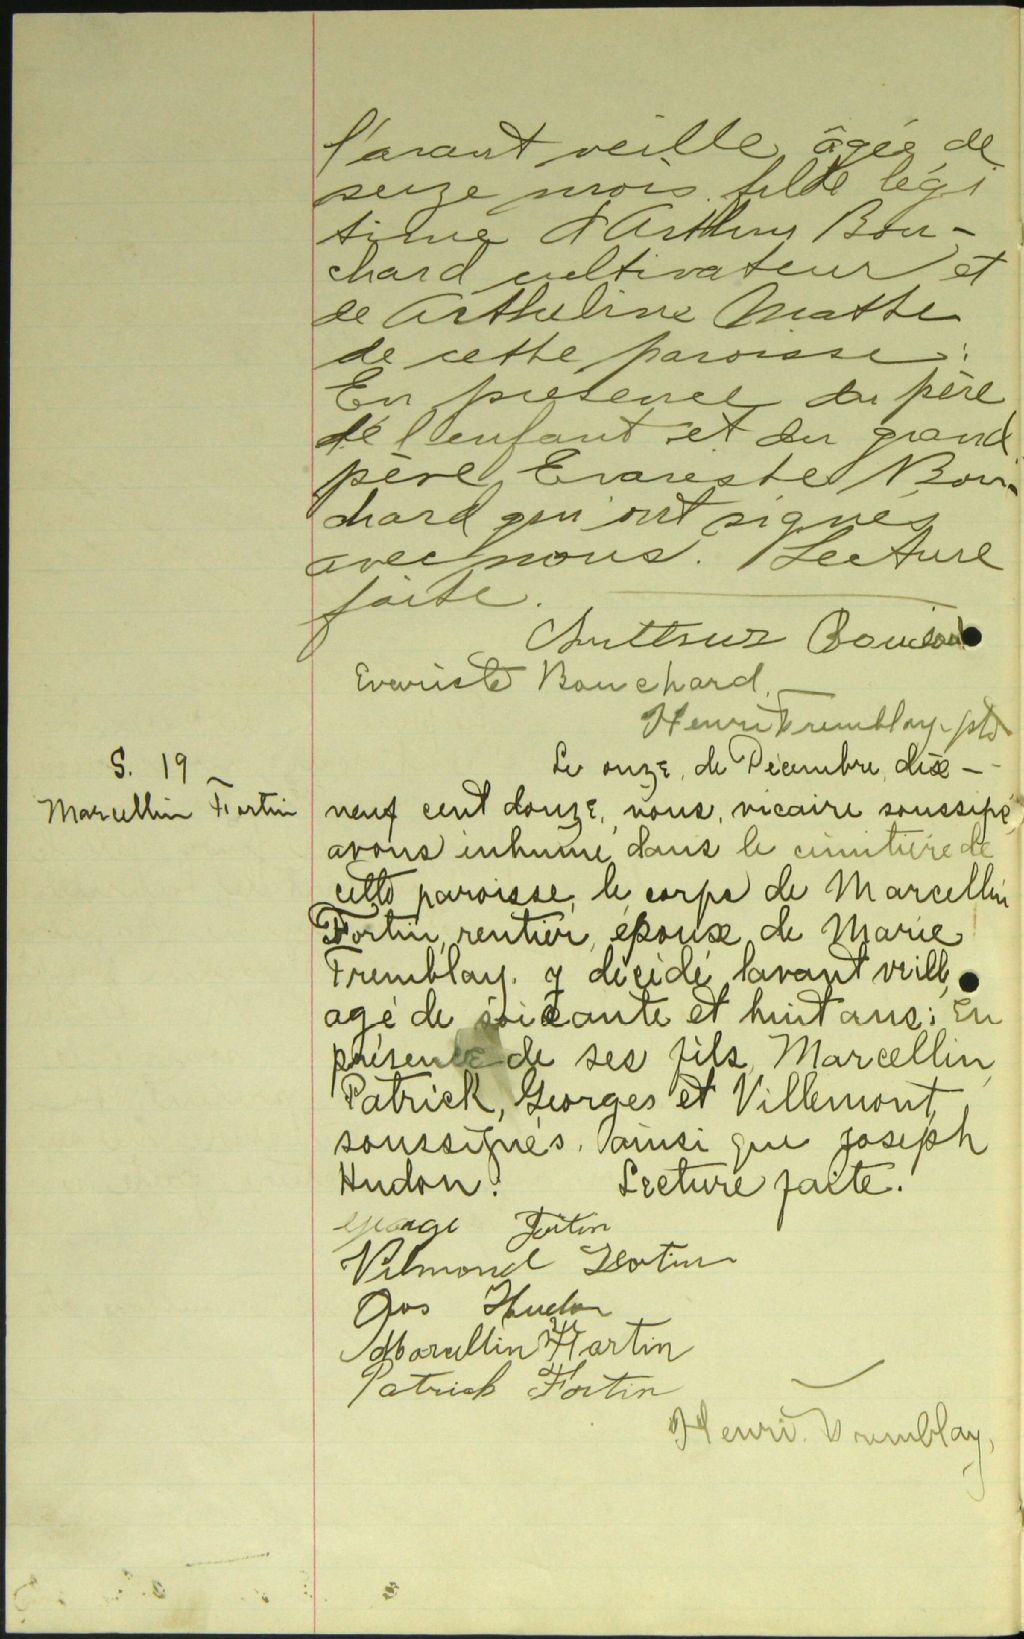 l'avant veille, âgée de
seize mois fille légi
time d'Arthur Bou-
chard cultivateur et
de Artheline Matte
de cette paroisse:
En presence du père
de l'enfant et du grand
père Evariste Bou-
chard qui ont signés
avec nous. Lecture
faite.
Arthur
Evariste Bouchard,
Henri Tremblay ptr
S. 19
Marcellin Fortin
Le onze, de Décembre, dix-
neuf cent douze, nous, vicaire soussigné
avons inhumé dans le cimitière de
cette paroisse, le corps de Marcellin
Fortin, rentier, époux de Marie
Tremblay. y décédé lavant veille,
agé de soixante et huit ans; En
présence de ses fils, Marcellin,
Patrick, Georges et Villemont,
soussignés. ainsi que Joseph
Hudon. Lecture faite.
George Fortin
Vilmond Fortin
Jos Hudon
Marcellin Fortin
Patrick Fortin
Henri Tremblay,